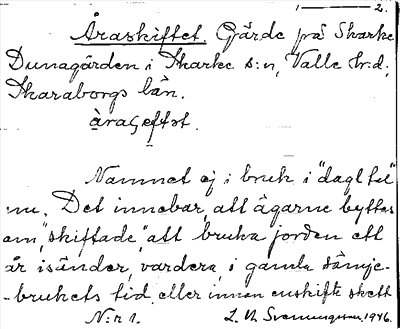 1 — 2.
Åraskiftet. Gärde på Skarke
Dunagården i Skarke s:n, Valle h:d,
Skaraborgs län.
àraςeftət.
Namnet ej i bruk i "dagl tal"
nu. Det innebar, att ägarne byttes
om, "skiftade" att bruka jorden ett
år isänder, vardera, i gamla sämje-
-brukets tid, eller innan enskifte skett
N:r 1. L. N. Svenungsson, 1946.